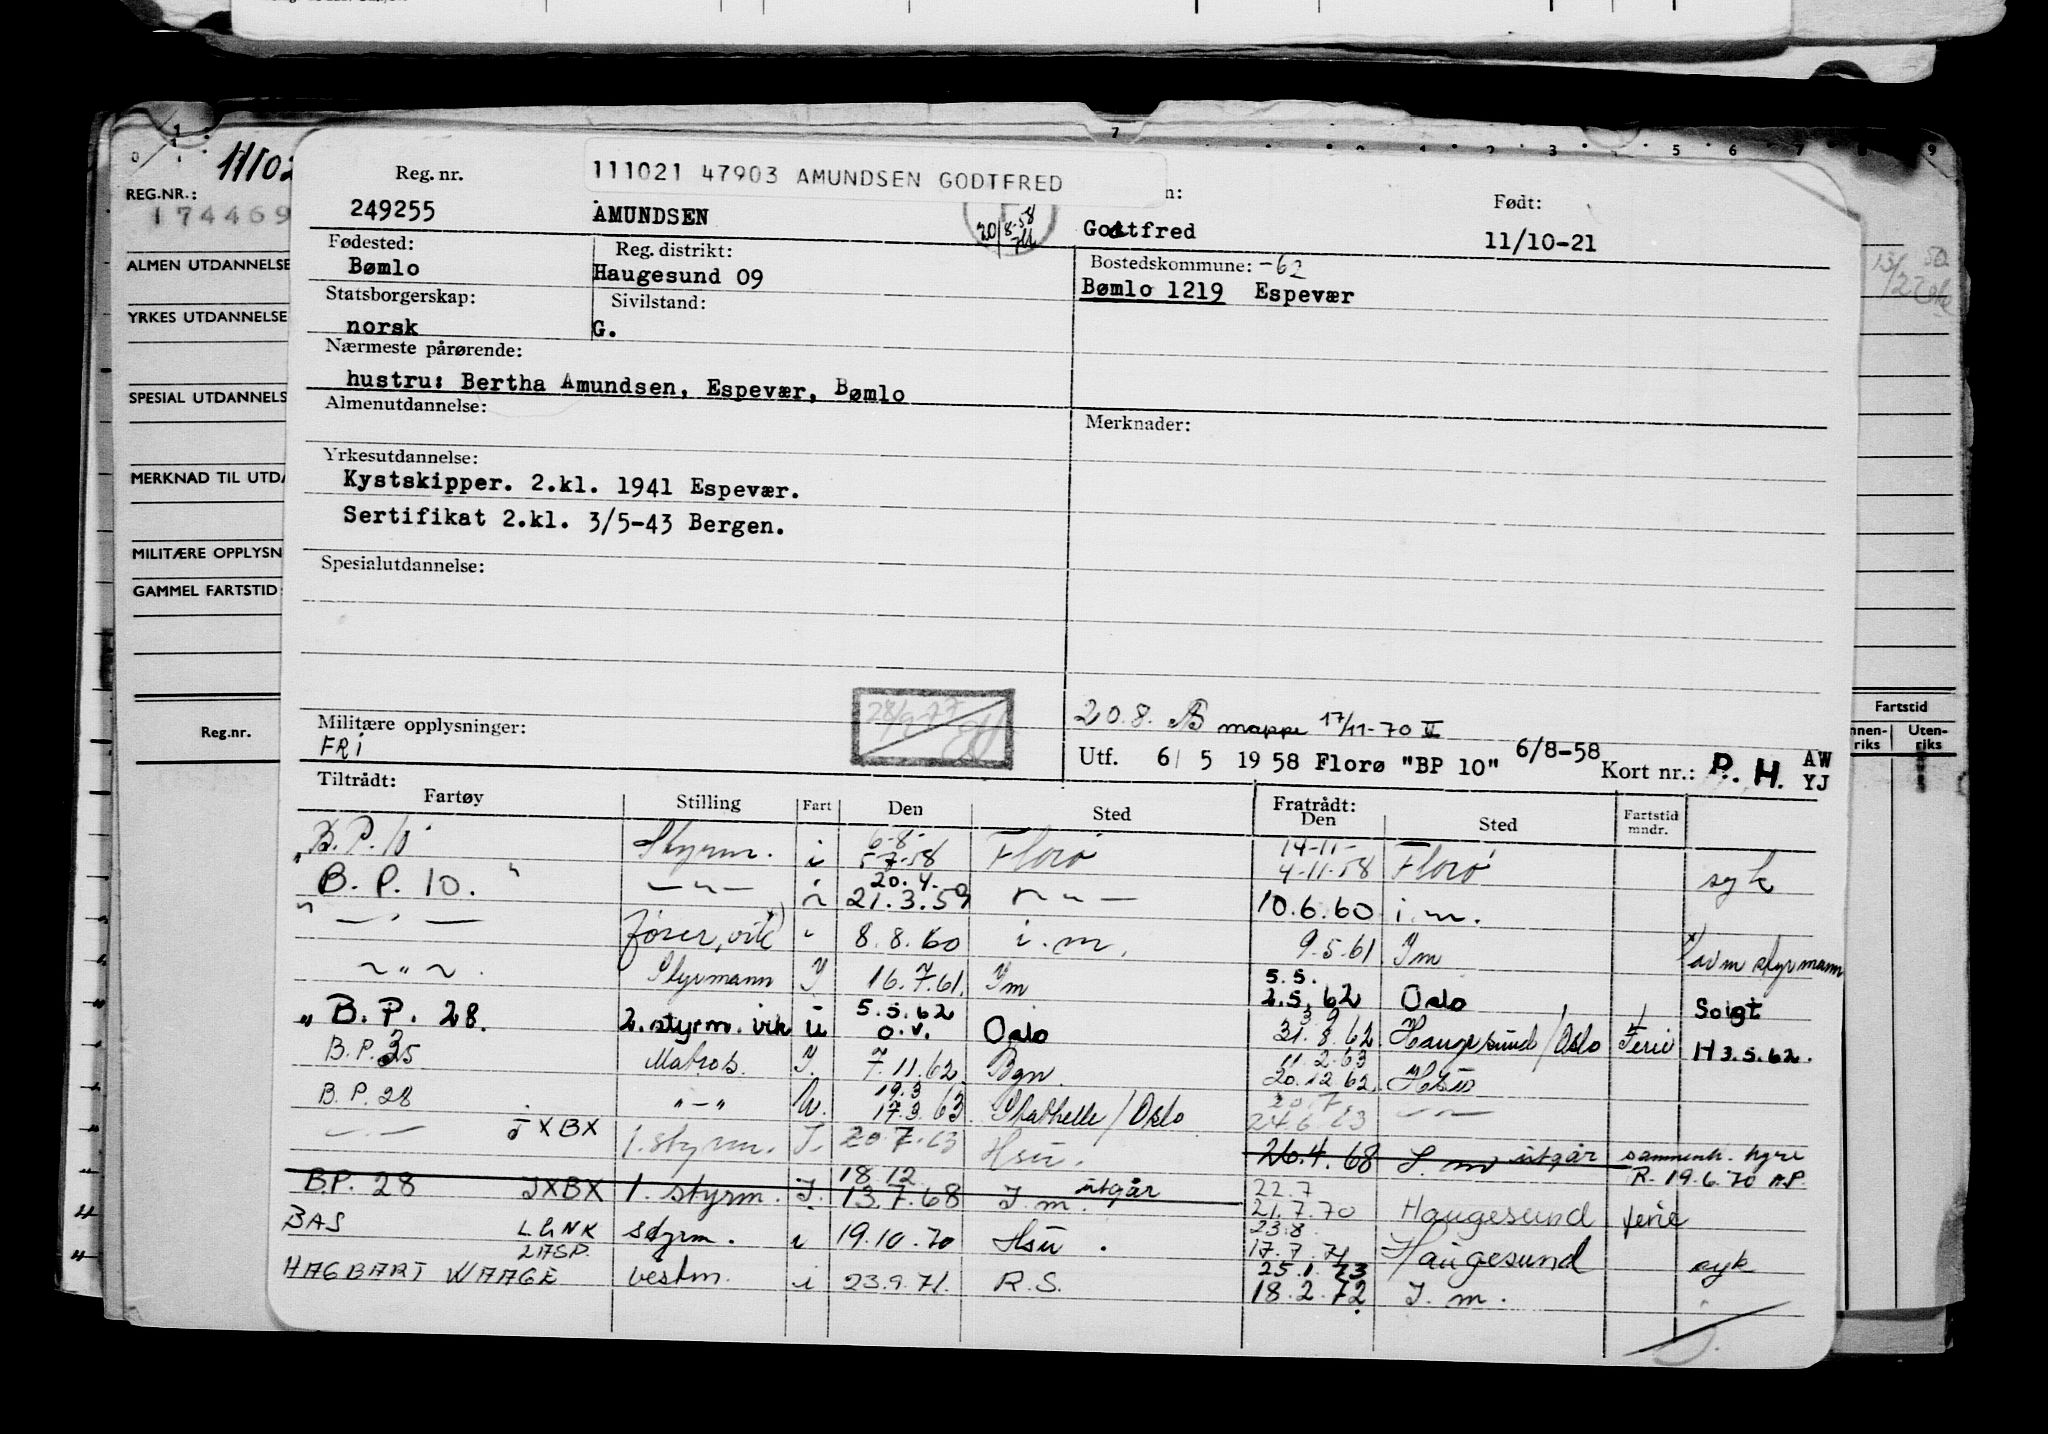 0 1 7 2 3 5 6 7 8 9
REG.NR.: 11102
174469
ALMEN UTDANNELSE
YRKES UTDANNELSE
SPECIAL UTDANNELS
MERKNAD TIL UTDA
MILITÆRE OPPLYSN
GAMMEL FARTSTID:
Reg.nr.
Fartstid
nnen-riks Uten-riks
Reg. nr. 111021 47903 AMUNDSEN GODTFRED n: Født:
249255 AMUNDSEN 20/8-58 Godtfred 11/10-21
Fødested: Reg. distrikt: Bostedskommune: -62
Bømlo Haugesund 09 Bømlo 1219 Espevær
Statsborgerskap: Sivilstand:
norsk G.
Nærmeste pårørende:
hustru: Bertha Amundsen, Espevær, Bømlo
Almenutdannelse: Merknader:
Yrkesutdannelse:
Kystskipper. 2.kl. 1941 Espevær.
Sertifikat 2.kl. 3/5-43 Bergen.
Spesialutdannelse:
20.8. mappe 17/11-70 II
Militære opplysninger:
FRI
Utf. 6/5 1958 Florø "BP 10" 6/8-58 Kort nr.: P. H. AW YJ
Tiltrådt: Fratrådt:
Fartøy Stilling Fart Den Sted Den Sted Fartstid mndr.
B.P. 10 Styrm. i 6-8- 5-7-58 Florø 14-11- 4-11-58 Florø syk
" B. P. 10. " — " — i 20.4. 21.3.59 — " — 10.6.60 i.m.
" — " — fører, vik i 8.8.60 i.m. 9.5.61 Im avm styrmann
— " — Styrmann I 16.7.61. Im 5.5. 2.5.62 Oslo Solgt
" B. P. 28. 2. styrm. vik u 5.5.62 o.v. Oslo 31.8.62 Haugesund/Oslo Ferie H 3.5.62.
B.P. 25 Matros. I. 7.11.62 Bgn. 11.2.63 20.12.62. HSu
B. P. 28 " — " U. 19.3 17.3.63 Stathelle/Oslo 20.7. 24.6.63 — " —
— " — JXBX 1. styrm. I. 20.7.63 Hsu. 26.4.68 I. m utgår sammenh. hyre
R. 19.6.70 A.P.
B.P. 28 JXBX 1. styrm. I. 18.12. 13.7.68 I.m. utgår 22.7 21.7.70 Haugesund ferie
BAS LGNK styrm. i 19.10.70 Hsu. 23.8. 17.7.71 Haugesund syk
HAGBART WAAGE bestm. i 23.9.71. R.S. 25.1.73 18.2.72 I. m.